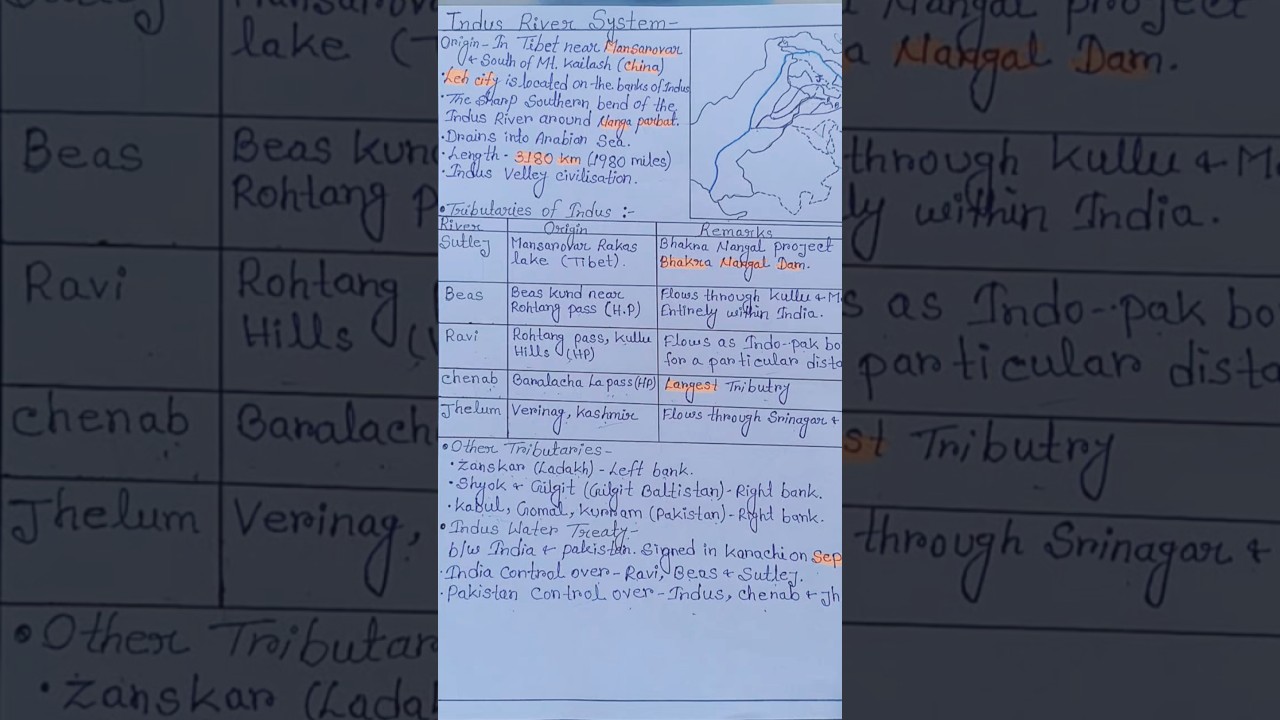 Indus River System-
Origin- In Tibet near Mansarovar
& South of Mt. Kailash (China)
·Leh city is located on the banks of Indus
·The Sharp Southern bend of the
Indus River around Nanga parbat.
·Drains into Arabian Sea.
·Length- 3180 km (1980 miles)
·Indus Velley civilisation.
•Tributaries of Indus :-
River Origin Remarks
Sutlej Mansarovar Rakas Bhakra Nangal project
lake (Tibet). Bhakra Nangal Dam.
Beas Beas kund near Flows through Kullu & M
Rohtang pass (H.P) Entirely within India.
Ravi Rohtang pass, kullu Flows as Indo-pak bo
Hills (HP) for a particular dista
chenab Baralacha La pass (HP) Largest Tributry
Jhelum Verinag, Kashmir Flows through Srinagar &
•Other Tributaries-
·Zanskar (Ladakh) - Left bank.
·Shyok & Gilgit (Gilgit Baltistan)- Right bank.
·Kabul, Gomal, Kurram (Pakistan)- Right bank.
•Indus Water Treaty-
b/w India & pakistan. Signed in Karachi on Sep
·India Control over- Ravi, Beas & Sutlej.
·Pakistan Control over- Indus, chenab & Jh
lake (T
Beas Beas kund
Rohtang p
Ravi Rohtang
Hills (
chenab Baralach
Jhelum Verinag,
•Other Tributar
·Zanskar (Ladak
Nangal project
a Nangal Dam.
through Kullu & M
ly within India.
s as Indo-pak bo
particular dista
st Tributry
through Srinagar &